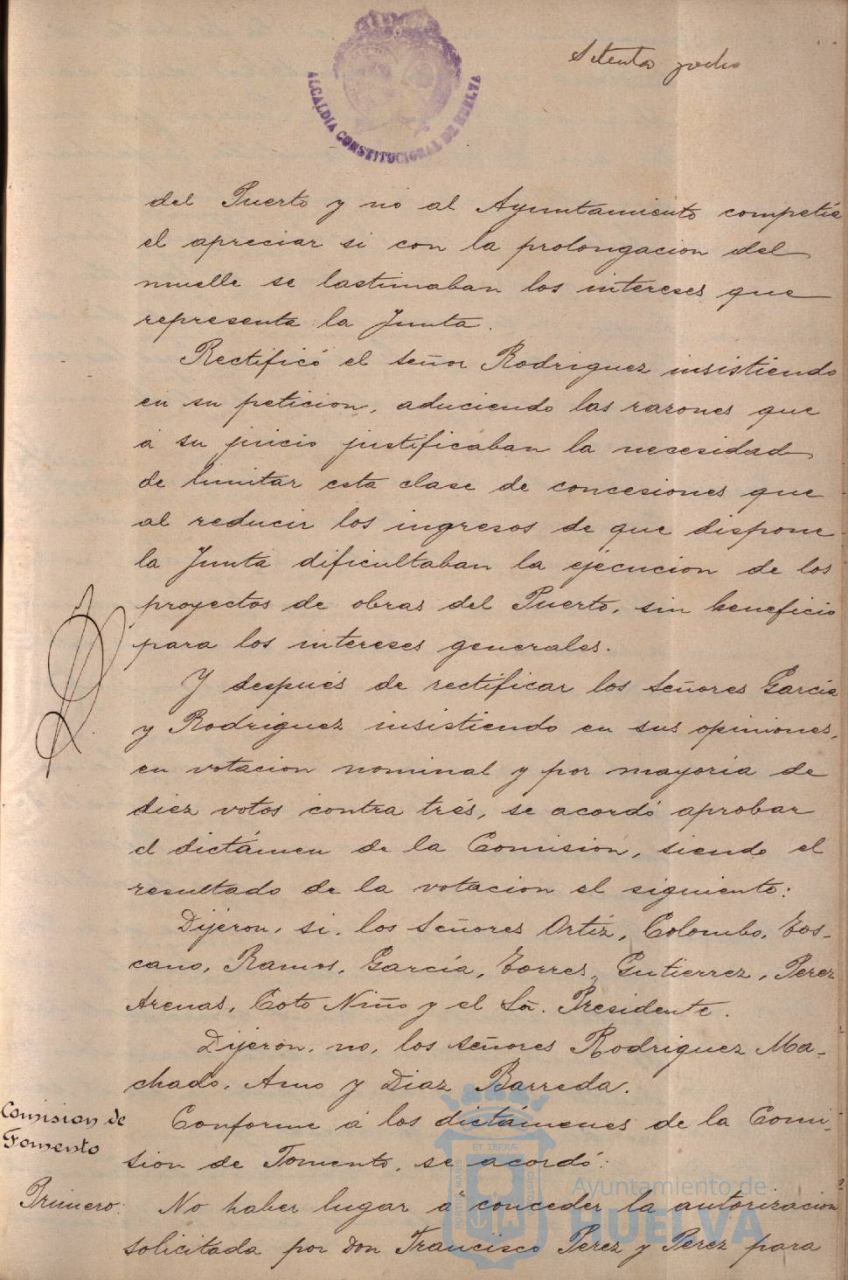 Setenta y ocho
ALCALDIA CONSTITUCIONAL DE HUELVA
del Puerto y no al Ayuntamiento competía
el apreciar si con la prolongacion del
muelle se lastimaban los intereses que
representa la Junta.
Rectificó el señor Rodriguez insistiendo
en su peticion, aduciendo las razones que
á su juicio justificaban la necesidad
de limitar esta clase de concesiones que
al reducir los ingresos de que dispone
la Junta dificultaban la ejecucion de los
proyectos de obras del Puerto, sin beneficio
para los intereses generales.
Y después de rectificar los Señores García
y Rodriguez insistiendo en sus opiniones,
en votacion nominal y por mayoria de
diez votos contra trés, se acordó aprobar
el dictámen de la Comisión, siendo el
resultado de la votacion el siguiente:
Dijeron, si, los Señores Ortíz, Colombo, Tos-
cano, Ramos, García, Torres, Gutierrez, Perez
Arenas, Coto Niño y el Sr. Presidente.
Dijeron, no, los señores Rodriguez Ma-
chado, Amo y Diaz Barreda.
Comision de
Fomento
Conforme á los dictámenes de la Comi-
sion de Fomento, se acordó:
Primero:
No haber lugar á conceder la autorizacion
solicitada por Don Francisco Perez y Perez para
Ayuntamiento de
HUELVA